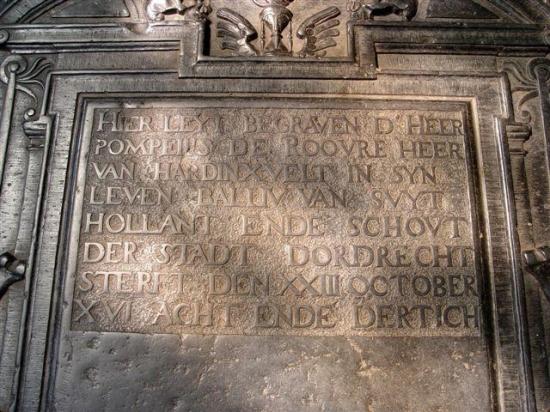 HIER LEYT BEGRAVEN D' HEER
POMPEIUS DE ROOVRE HEER
VAN HARDINXVELT IN SYN
LEVEN BALIUV VAN SVYT
HOLLANT ENDE SCHOVT
DER STADT DORDRECHT
STERFT DEN XXIII OCTOBER
XVI ACHT ENDE DERTICH